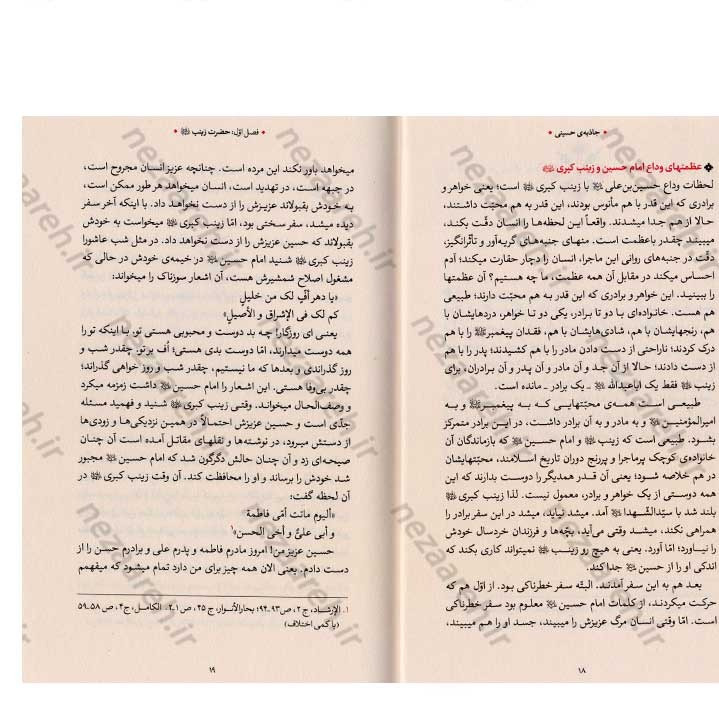 • جاذبه‌ی حسینی •
❖ عظمتهای وداع امام حسین و زینب کبری ﷺ
لحظات وداع حسین‌بن‌علی ﷺ با زینب کبری ﷺ است؛ یعنی خواهر و
برادری که این قدر با هم مأنوس بودند، این قدر به هم محبّت داشتند،
حالا از هم جدا میشدند. واقعاً این لحظه‌ها را انسان دقّت بکند،
میبیند چقدر باعظمت است. منهای جنبه‌های گریه‌آور و تأثّرانگیز،
دقّت در جنبه‌های روانی این ماجرا، انسان را دچار حقارت میکند؛ آدم
احساس میکند در مقابل آن همه عظمت، ما چه هستیم؟ آن عظمتها
را ببینید. این خواهر و برادری که این قدر به هم محبّت دارند؛ طبیعی
هم هست. خانواده‌ای با دو تا برادر، یکی دو تا خواهر، دردهایشان با
هم، رنجهایشان با هم، شادی‌هایشان با هم، فقدان پیغمبر ﷺ را با هم
درک کردند؛ ناراحتی از دست دادن مادر را با هم کشیدند؛ پدر را با هم
از دست دادند؛ حالا از آن جد و آن مادر و آن پدر و آن برادران، برای
زینب ﷺ فقط یک اباعبدالله ﷺ ـ یک برادر ـ مانده است.
طبیعی است همه‌ی محبّتهایی که به پیغمبر ﷺ و به
امیرالمؤمنین ﷺ و به مادر و به آن برادر داشت، در این برادر متمرکز
بشود. طبیعی است که زینب ﷺ و امام حسین ﷺ که بازماندگان آن
خانواده‌ی کوچک پرماجرا و پررنج دوران تاریخ اسلامند، محبّتهایشان
در هم خلاصه شود؛ یعنی آن قدر همدیگر را دوست بدارند که این
همه دوستی از یک خواهر و برادر، معمول نیست. لذا زینب کبری ﷺ
بلند شد با سیّدالشّهدا ﷺ آمد. میشد نیاید، میشد در این سفر برادر را
همراهی نکند، میشد وقتی می‌آید، بچّه‌ها و فرزندان خردسال خودش
را نیاورد؛ امّا آورد. یعنی به هیچ رو زینب ﷺ نمیتواند کاری بکند که
اندکی او را از حسین ﷺ جدا کند.
بعد هم به این سفر آمدند. البتّه سفر خطرناکی بود. از اوّل هم که
حرکت میکردند، از کلمات امام حسین ﷺ معلوم بود سفر خطرناکی
است. امّا وقتی انسان مرگ عزیزش را میبیند، جسد او را هم میبیند،
۱۸
• فصل اوّل: حضرت زینب ﷺ •
میخواهد باور نکند این مرده است. چنانچه عزیز انسان مجروح است،
در جبهه است، در تهدید است، انسان میخواهد هر طور ممکن است،
به خودش بقبولاند عزیزش را از دست نخواهد داد. با اینکه آخر سفر
دیده میشد، سفر سختی بود، امّا زینب کبری ﷺ میخواست به خودش
بقبولاند که حسین عزیزش را از دست نخواهد داد. در مثل شب عاشورا
زینب کبری ﷺ شنید امام حسین ﷺ در خیمه‌ی خودش در حالی که
مشغول اصلاح شمشیرش هست، آن اشعار سوزناک را میخواند:
«یا دهر أفٍّ لک من خلیلِ
کم لک فی الإشراق و الأصیلِ»
یعنی ای روزگار! چه بد دوست و محبوبی هستی تو. با اینکه تو را
همه دوست میدارند، امّا دوست بدی هستی؛ اُف بر تو. چقدر شب و
روز گذراندی و بعدها که ما نیستیم، چقدر شب و روز خواهی گذراند؛
چقدر بی‌وفا هستی. این اشعار را امام حسین ﷺ داشت زمزمه میکرد
و وصف‌الحال میخواند. وقتی زینب کبری ﷺ شنید و فهمید مسئله
جدّی است و حسین عزیزش احتمالاً در همین نزدیکی‌ها و زودی‌ها
از دستش میرود، در نوشته‌ها و نقلهای مقاتل آمده است آن چنان
صیحه‌ای زد و آن چنان حالش دگرگون شد که امام حسین ﷺ مجبور
شد خودش را برساند و او را محافظت کند. آن وقت زینب کبری ﷺ در
آن لحظه گفت:
«الیوم ماتت أمّی فاطمة
و أبی علیٌّ و أخی الحسن»۱
حسین عزیز من! امروز مادرم فاطمه و پدرم علی و برادرم حسن را از
دست دادم. یعنی الان همه چیز برای من دارد تمام میشود که میفهمم
۱. الإرشاد، ج ۲، ص ۹۳ـ۹۴؛ بحارالأنوار، ج ۴۵، ص ۱ـ۲؛ الکامل، ج ۴، ص ۵۸ـ۵۹
(با کمی اختلاف)
۱۹
nezaareh.ir